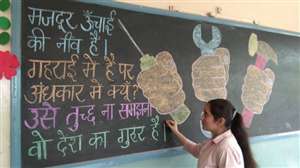 मजदूर ऊँचाई
की नींव है।
गहराई में है पर
अंधकार में क्यों?
उसे तुच्छ ना समझना
वो देश का गुरूर है।